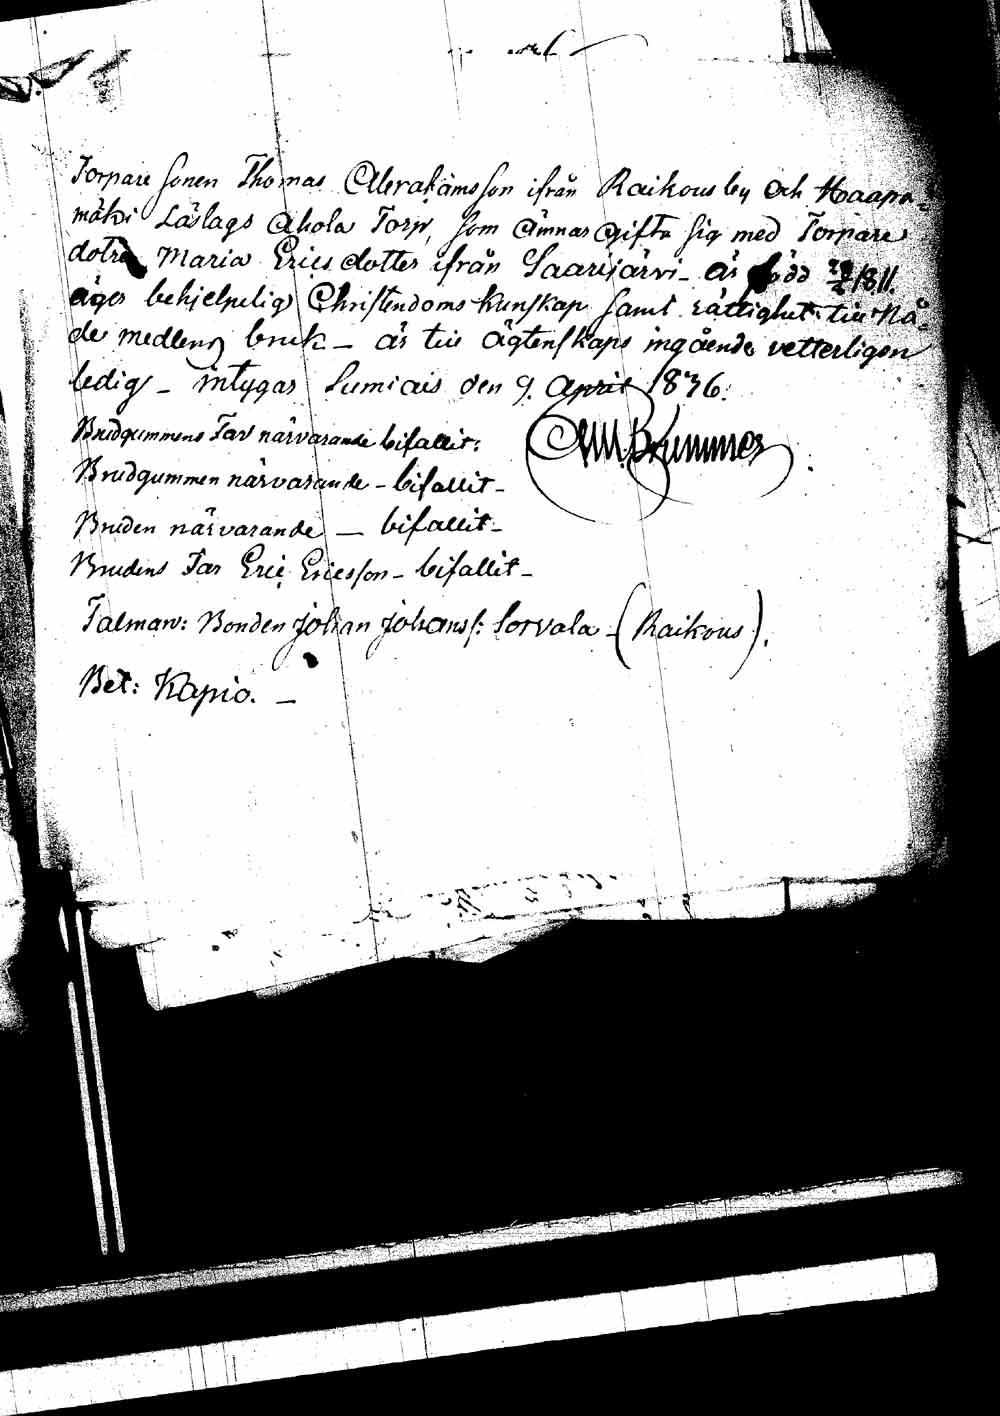 Torpare sonen Thomas Abrahamsson ifrån Raikous by och Haapa-
mäki Läslags Ahola Torp, som ämnar gifta sig med Torpare
dotren Maria Erics dotter ifrån Saarijärvi - är född 1811.
äger behjelpelig Christendoms kunskap samt rättighet till Nå-
de medlens bruk - är till ägtenskaps ingående vetterligen
ledig - intygar Sumiais den 9. April 1836.
Brudgummens Far närvarande bifallit:
Brummer
Brudgummen närvarande - bifallit -
Bruden närvarande - bifallit -
Brudens Far Eric Ericsson - bifallit -
Talman: Bonden Johan Johanss: Sorvala - (Raikous).
Bet: Kapio. -